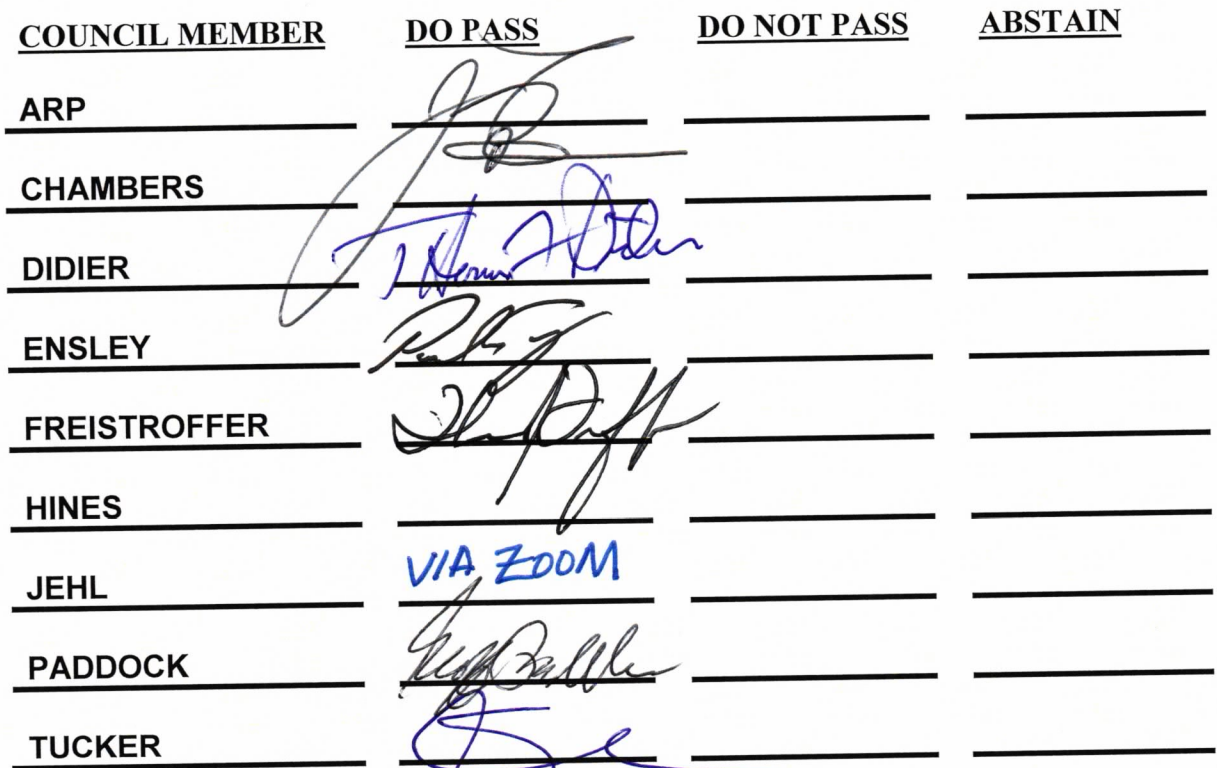 COUNCIL MEMBER DO PASS DO NOT PASS ABSTAIN
ARP
CHAMBERS
DIDIER
ENSLEY
FREISTROFFER
HINES
JEHL VIA ZOOM
PADDOCK
TUCKER